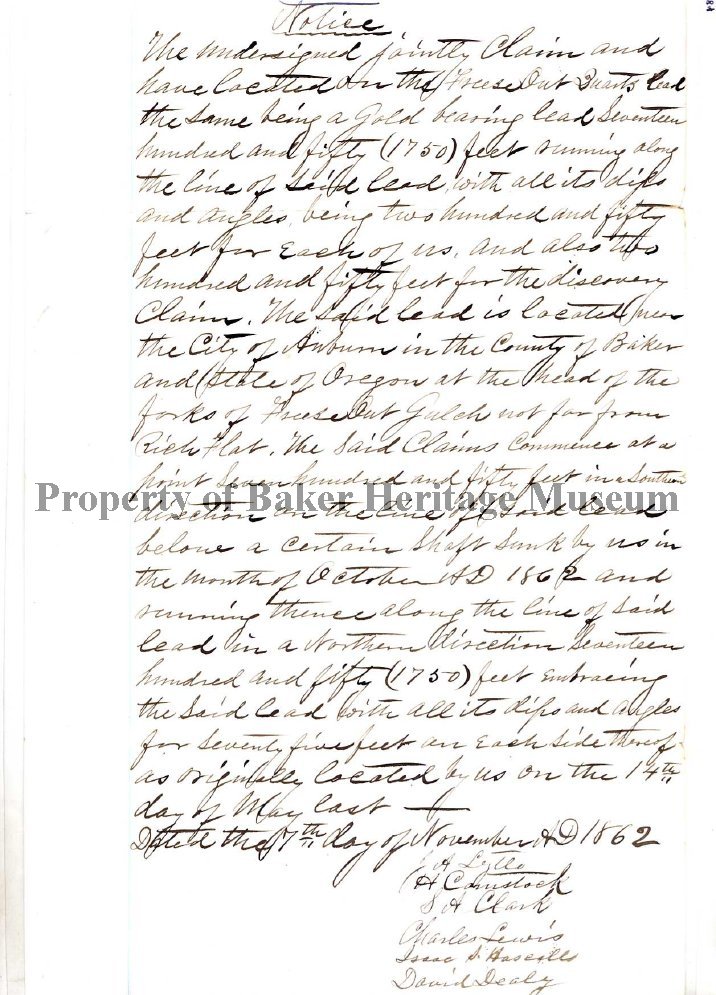 Notice
The undersigned jointly Claim and
have located on the Freese Out Quarts lead
the same being a Gold bearing lead Seventeen
hundred and fifty (1750) feet running along
the line of said lead, with all its dips
and angles, being two hundred and fifty
feet for Each of us, and also two
hundred and fifty feet for the discovery
Claim. The said lead is located near
the City of Auburn in the County of Baker
and State of Oregon at the head of the
forks of Freese Out Gulch not far from
Rich Flat. The Said Claims Commence at a
point Seven hundred and fifty feet in a Southern
Property of Baker Heritage Museum
direction on the line of said lead
belone a Certain Shaft Sunk by us in
the month of October AD 1862 and
running thence along the line of Said
lead in a Northern direction Seventeen
hundred and fifty (1750) feet Embracing
the Said lead with all its dips and angles
for seventy five feet on Each Side thereof
as originally located by us on the 14th
day of May last —
Dated the 7th day of November AD 1862
J A Lytle
H Comstock
S A Clark
Charles Lewis
Isaac S
David Dealy